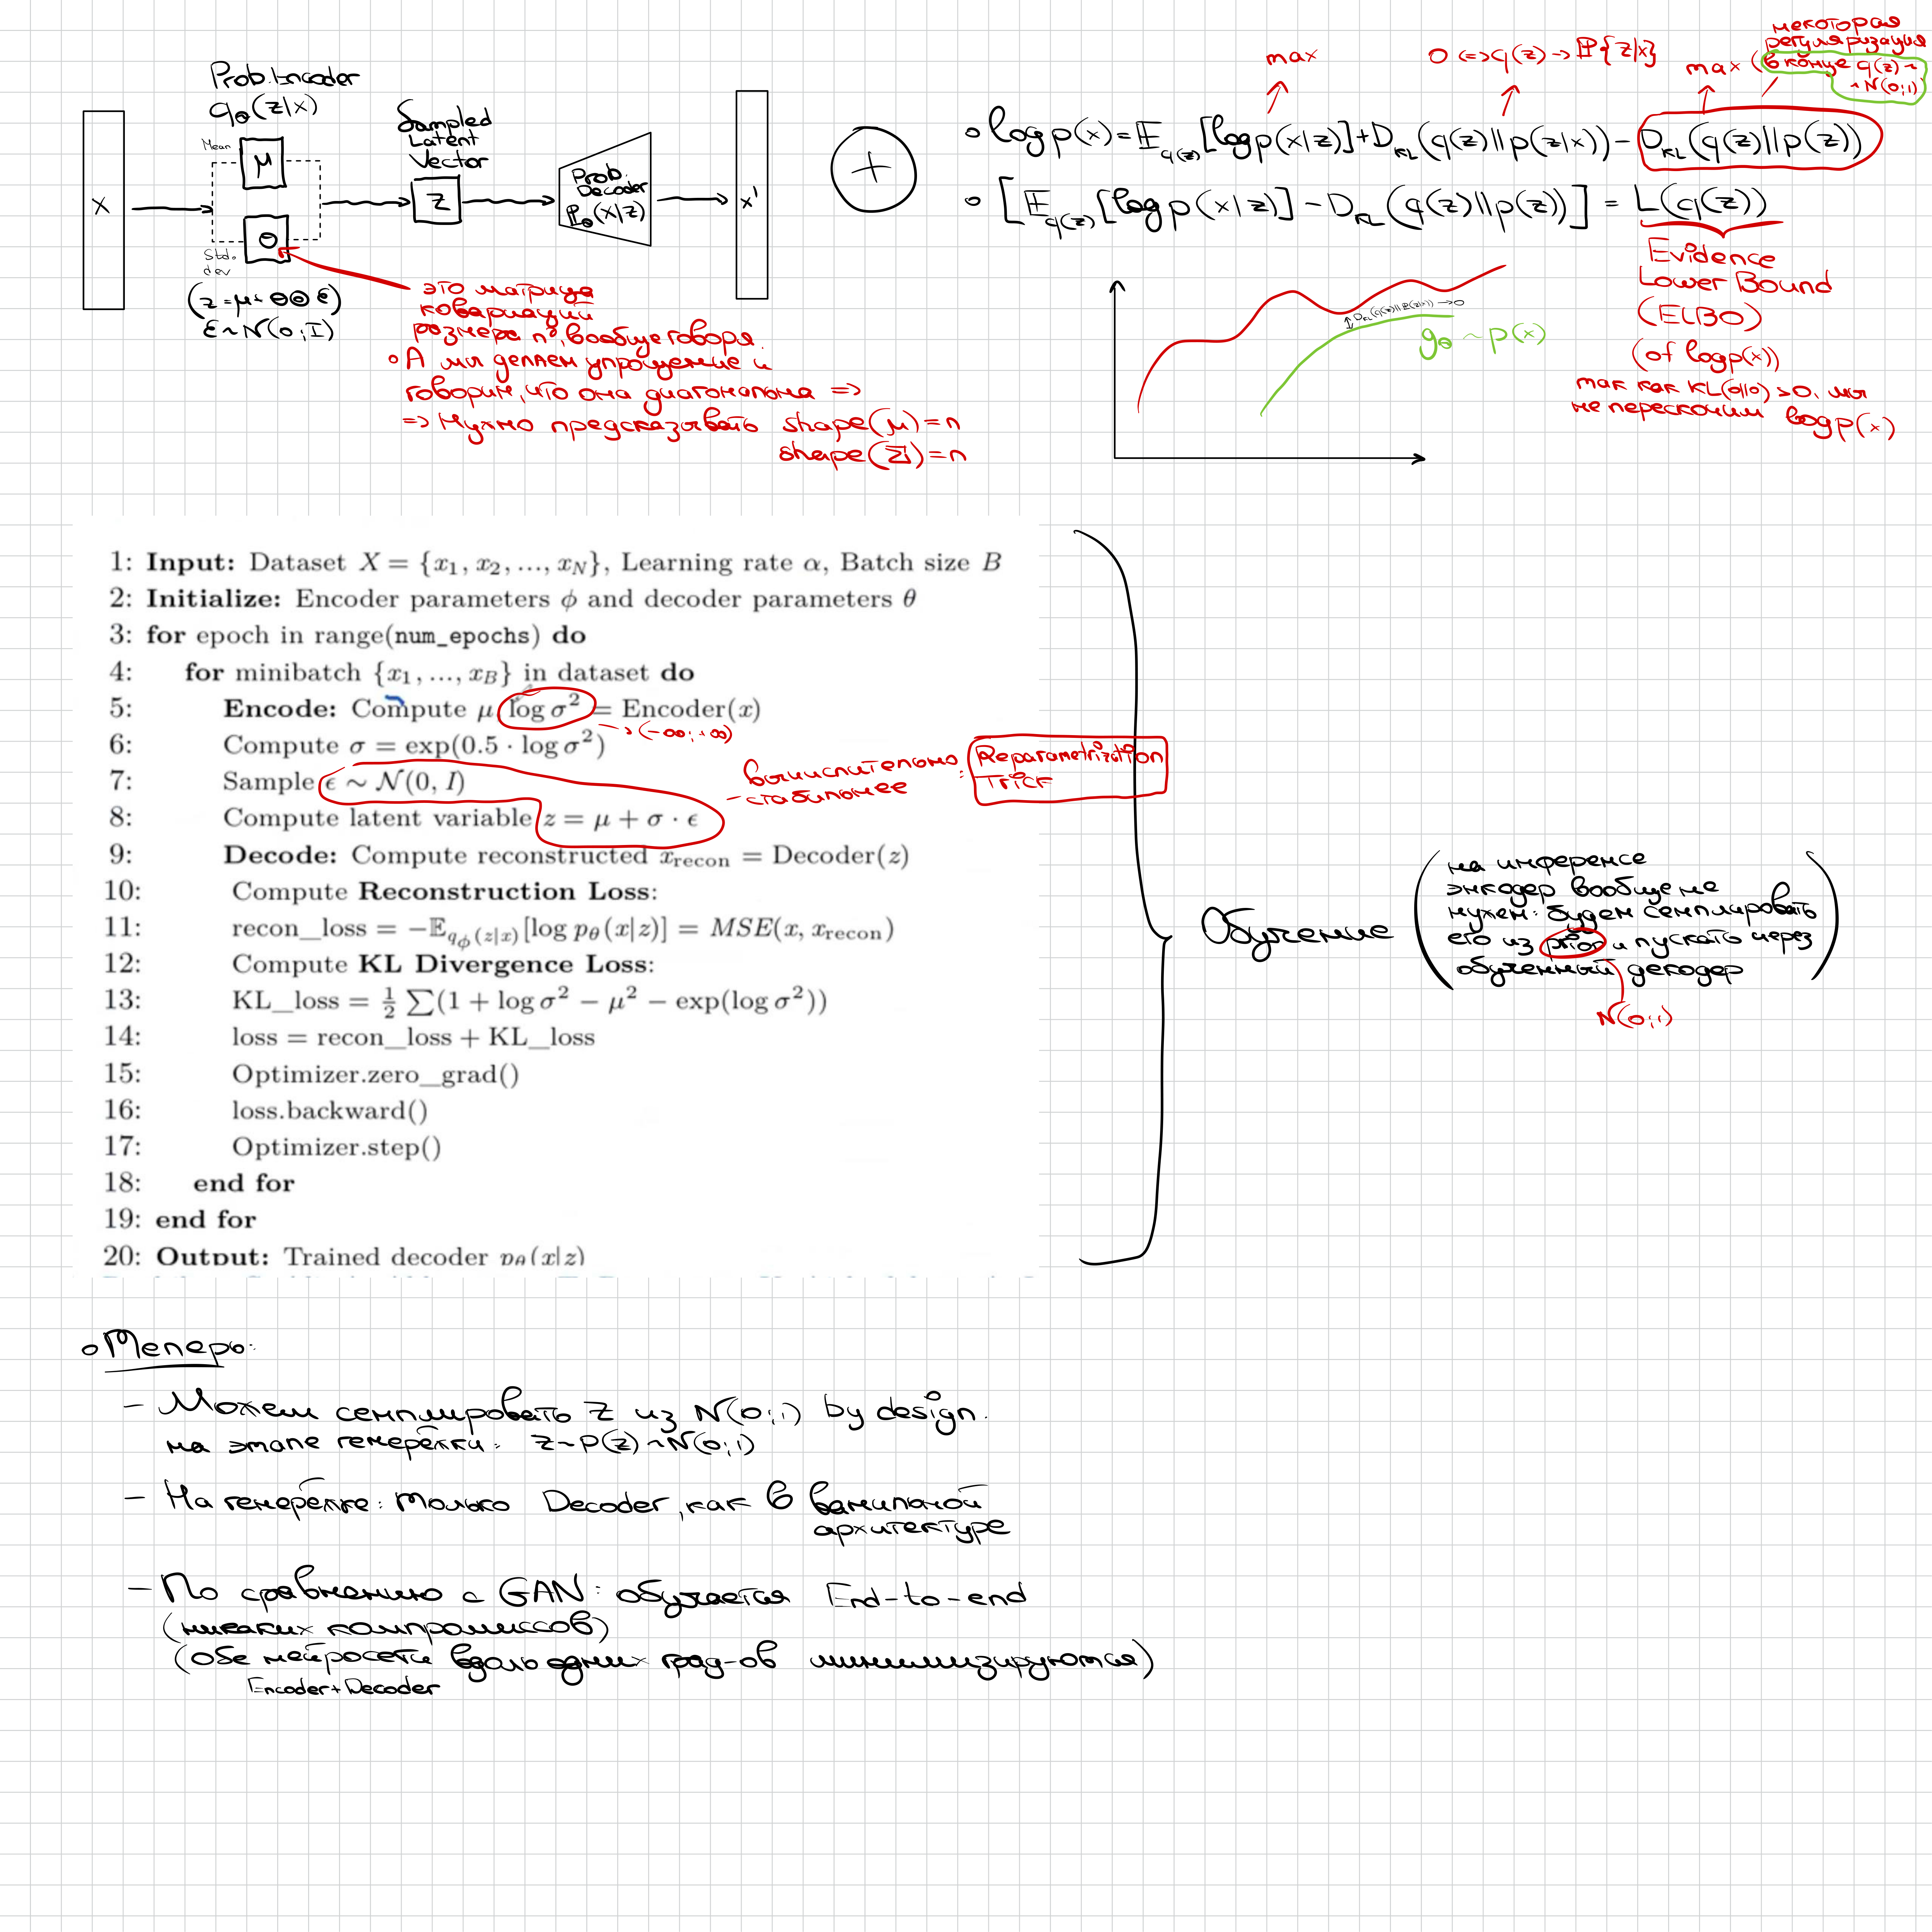 Prob. Encoder
q_θ(z|x)
Mean
μ
Std.
dev
X
(z = μ + ΘΘ ε)
ε ~ N(0; I)
Sampled
Latent
Vector
z
Prob.
Decoder
P_θ(x|z)
x'
это матрица
ковариации
размера n², вообще говоря.
А мы делаем упрощение и
говорим, что она диагональна =>
=> Нужно предсказывать shape(μ) = n
shape(Σ) = n
+
max
0 <=> q(z) -> P{z|x}
max (
некоторая
регуляризация
в конце q(z) ~
~ N(0;1)
log p(x) = E_q(z) [log p(x|z)] + D_KL(q(z)||p(z|x)) - D_KL(q(z)||p(z))
[E_q(z) [log p(x|z)] - D_KL(q(z)||p(z))] = L(q(z))
Evidence
Lower Bound
(ELBO)
(of log p(x))
так как KL(0||0) > 0, мы
не перескочим log p(x)
g_θ ~ p(x)
1: Input: Dataset X = {x_1, x_2, ..., x_N}, Learning rate α, Batch size B
2: Initialize: Encoder parameters ϕ and decoder parameters θ
3: for epoch in range(num_epochs) do
4: for minibatch {x_1, ..., x_B} in dataset do
5: Encode: Compute μ log σ² = Encoder(x)
-> (-∞; +∞)
6: Compute σ = exp(0.5 · log σ²)
7: Sample ϵ ~ N(0, I)
8: Compute latent variable z = μ + σ · ϵ
вычислительно
- стабильнее
Reparametrization
Trick
9: Decode: Compute reconstructed x_recon = Decoder(z)
10: Compute Reconstruction Loss:
11: recon_loss = −E_{q_ϕ(z|x)}[log p_θ(x|z)] = MSE(x, x_recon)
12: Compute KL Divergence Loss:
13: KL_loss = ½ ∑(1 + log σ² − μ² − exp(log σ²))
14: loss = recon_loss + KL_loss
15: Optimizer.zero_grad()
16: loss.backward()
17: Optimizer.step()
18: end for
19: end for
20: Output: Trained decoder p_θ(x|z)
Обучение
на инференсе
энкодер вообще не
нужен: будем семплировать
его из prior и пускать через
обученный декодер
N(0;1)
Теперь:
- Можем семплировать z из N(0;1) by design.
на этапе генерёлки: z ~ P(z) ~ N(0;1)
- На генерёлке: только Decoder, как в ванильной
архитектуре
- По сравнению с GAN: обучается End-to-end
(никаких компромиссов)
(обе нейросети вдоль одних град-ов минимизируются)
Encoder + Decoder